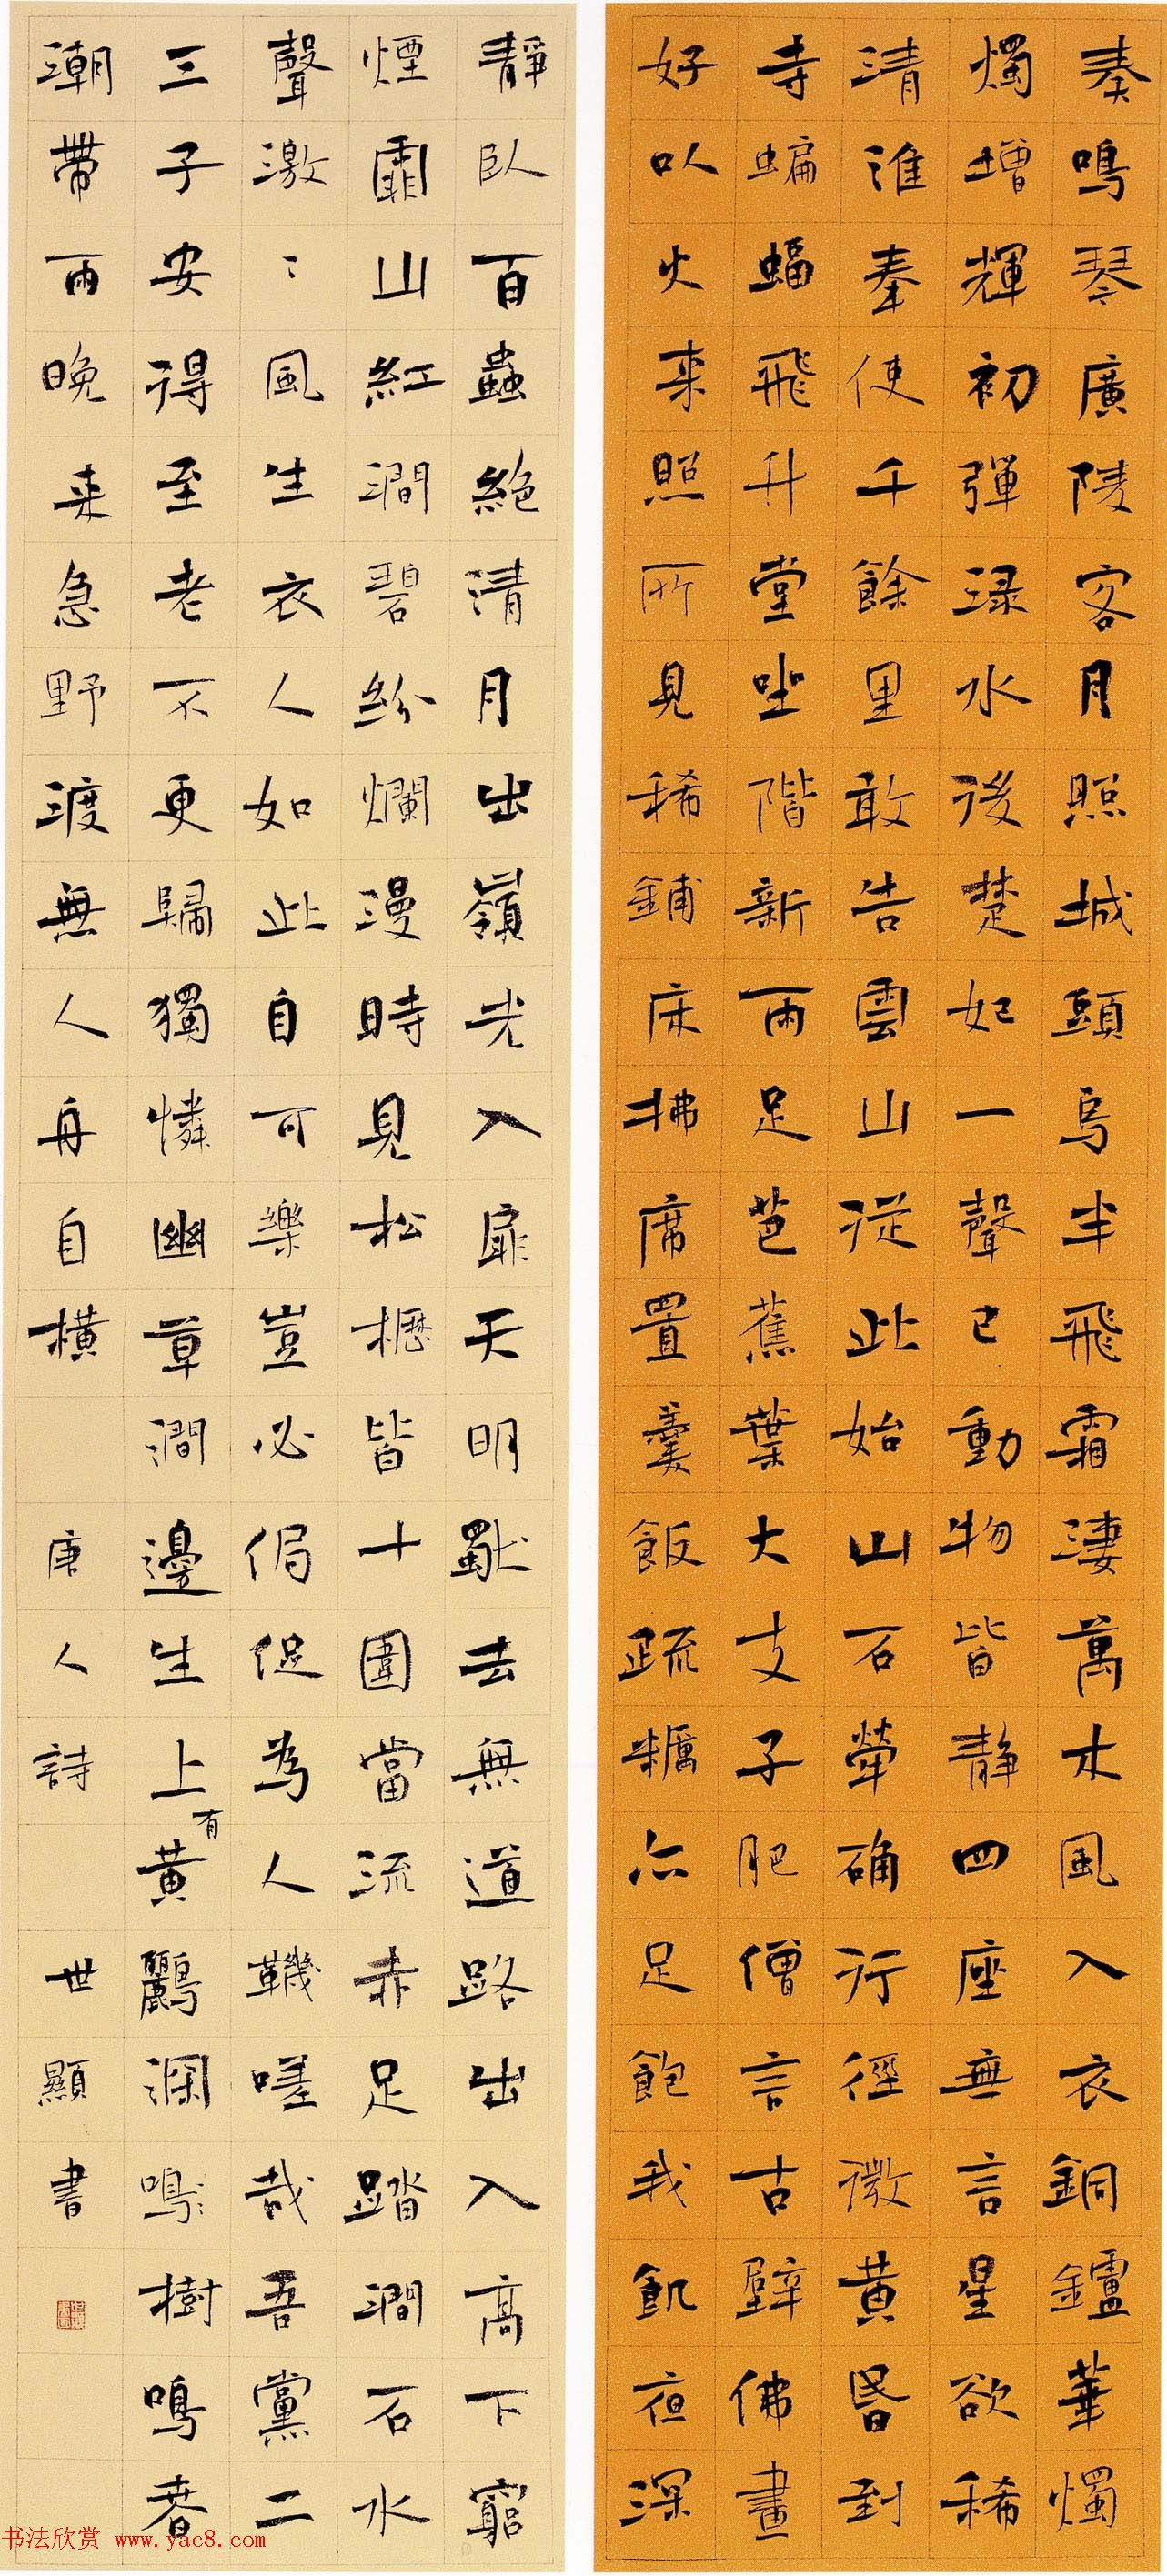 奏鳴琴廣陵客月照城頭烏半飛霜淒萬木風入衣銅鑪華燭
燭增輝初彈渌水後楚妃一聲已動物皆靜四座無言星欲稀
清淮奉使千餘里敢告雲山從此始山石犖确行徑微黃昏到
寺蝙蝠飛升堂坐階新雨足芭蕉葉大支子肥僧言古壁佛畫
好以火來照所見稀鋪床拂席置羹飯疏糲亦足飽我飢夜深
靜臥百蟲絕清月出嶺光入扉天明獨去無道路出入高下窮
煙霏山紅澗碧紛爛漫時見松櫪皆十圍當流赤足踏澗石水
聲激〻風生衣人如此自可樂豈必侷促為人鞿嗟哉吾黨二
三子安得至老不更歸獨憐幽草澗邊生上有黃鸝深鳴〻樹鳴春
潮帶雨晚來急野渡無人舟自橫 唐人詩 世顯書
书法欣赏 www.yac8.com